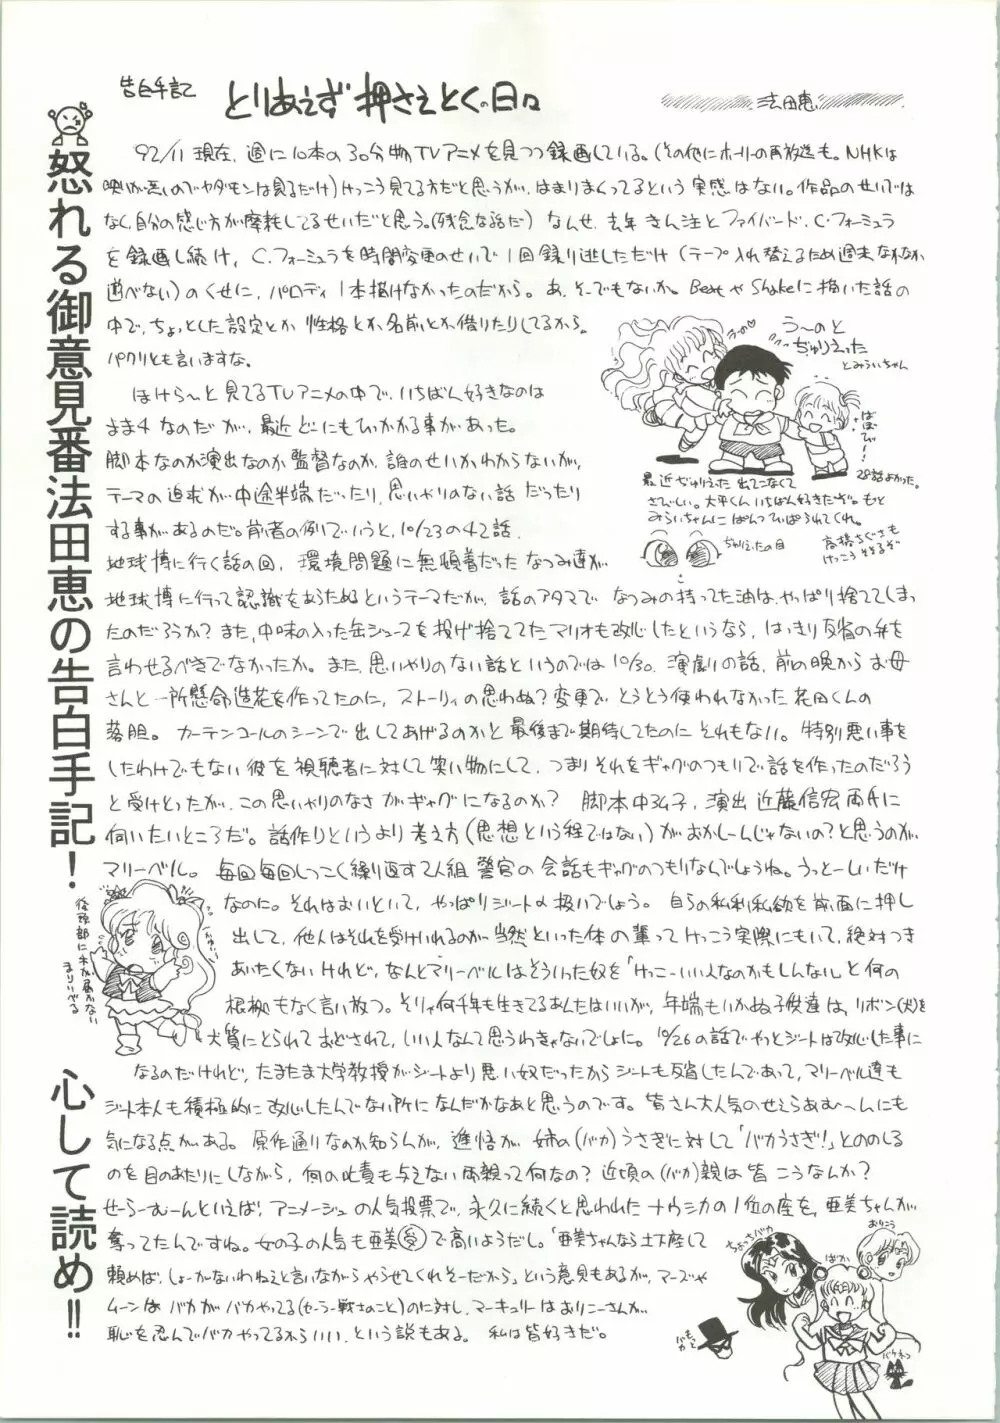 告白手記
とりあえず押さえとく日々
法田恵
怒れる御意見番法田恵の告白手記!
心して読め!!
92/11現在、週に10本の30分物TVアニメを見つつ録画している。(その他にホーリーの再放送も。NHKは
映りが悪いのでヤダモンは見るだけ)けっこう見てる方だと思うが、はまりまくってるという実感はない。作品のせいでは
なく、自分の感じ方が摩耗してるせいだと思う。(残念な話だ)なんせ、去年きん注とファイバード、C・フォーミュラ
を録画し続け、C.フォーミュラを時間変更のせいで1回録り逃しただけ(テープ入れ替えるため週末なかなか
遊べない)のくせに、パロディ1本描けなかったのだから。あ、そーでもないか。BeatやShakeに描いた話の
中で、ちょっとした設定とか性格とか名前とか借りたりしてるから。
パクリとも言いますな。
ほけら〜と見てるTVアニメの中で、いちばん好きなのは
ままキなのだが、最近どーにもひっかかる事があった。
脚本なのか演出なのか監督なのか、誰のせいかわからないが、
テーマの追求が中途半端だったり、思いやりのない話だったり
する事があるのだ。前者の例でいうと、10/23の42話、
地球博に行く話の回、環境問題に無頓着だったなつみ達が
地球博に行って認識をあらためるというテーマだが、話のアタマでなつみの持ってた油は、やっぱり捨ててしまっ
たのだろうか?また、中味の入った缶ジュースを投げ捨ててたマリオも改心したというなら、はっきり反省の弁を
言わせるべきでなかったか。また、思いやりのない話というのでは10/30、演劇の話、前の晩からお母
さんと一所懸命造花を作ってたのに、ストーリィの思わぬ?変更で、とうとう使われなかった花田くんの
落胆。カーテンコールのシーンで出してあげるのかと最後まで期待してたのにそれもない。特別悪い事を
したわけでもない彼を視聴者に対して笑い物にして、つまりそれをギャグのつもりで話を作ったのだろう
と受けとったが、この思いやりのなさがギャグになるのか?脚本中弘子、演出近藤信宏両氏に
伺いたいところだ。話作りというより考え方(思想という程ではない)がおかしーんじゃないの?と思うのが、
マリーベル。毎回毎回しつこく繰り返す2人組警官の会話もギャグのつもりなんでしょうね。うっとーしいだけ
なのに。それはおいといて、やっぱりジートの扱いでしょう。自らの私利私欲を前面に押し
出して、他人はそれを受けいれるのが当然といった体の輩ってけっこう実際にもいて、絶対つき
あいたくないけれど、なんとマリーベルはそういった奴を「けっこーいい人なのかもしんない」と何の
根拠もなく言い放つ。そりゃ何千年も生きてるあんたはいいが、年端もいかぬ子供達は、リボン(犬)を
犬質にとられておどされて、いい人なんて思うわきゃないでしょに。10/26の話でやっとジートは改心した事に
なるのだけれど、たまたま大学教授がジートより悪い奴だったからジートも反省したんであって、マリーベル達も
ジート本人も積極的に改心したんでない所になんだかなあと思うのです。皆さん大人気のせえらあむ〜んにも
気になる点がある。原作通りなのか知らんが、進悟が姉の(バカ)うさぎに対して「バカうさぎ!」とののしる
のを目のあたりにしながら、何の叱責も与えない両親って何なの?近頃の(バカ)親は皆こうなんか?
せーらーむーんといえば、アニメージュの人気投票で、永久に続くと思われたナウシカの1位の座を、亜美ちゃんが
奪ってたんですね。女の子の人気も亜美(受)で高いようだし。「亜美ちゃんなら土下座して
頼めば、しょーがないわねえと言いながらやらせてくれそーだから」という意見もあるが、マーズや
ムーンはバカがバカやってる(セーラー戦士のこと)のに対し、マーキュリーはおりこーさんが
恥を忍んでバカやってるからいい、という説もある。私は皆好きだ。
う〜のと
ぢゅりえった
とみらいちゃん
うーの♡
ばばひー!
28話よかった。
最近ぢゅりえった出てこなくて
さびしい。大平くんいちばん好きだぞ。もと
みらいちゃんにぱんつひっぱられてくれ。
ぢゅりえったの目
高橋ちぐさも
けっこうそそるぞ
後頭部に手が届かない
まりいべる
ちょっとバカ
おりこう
ばか
もっと
バカ
バケネコ